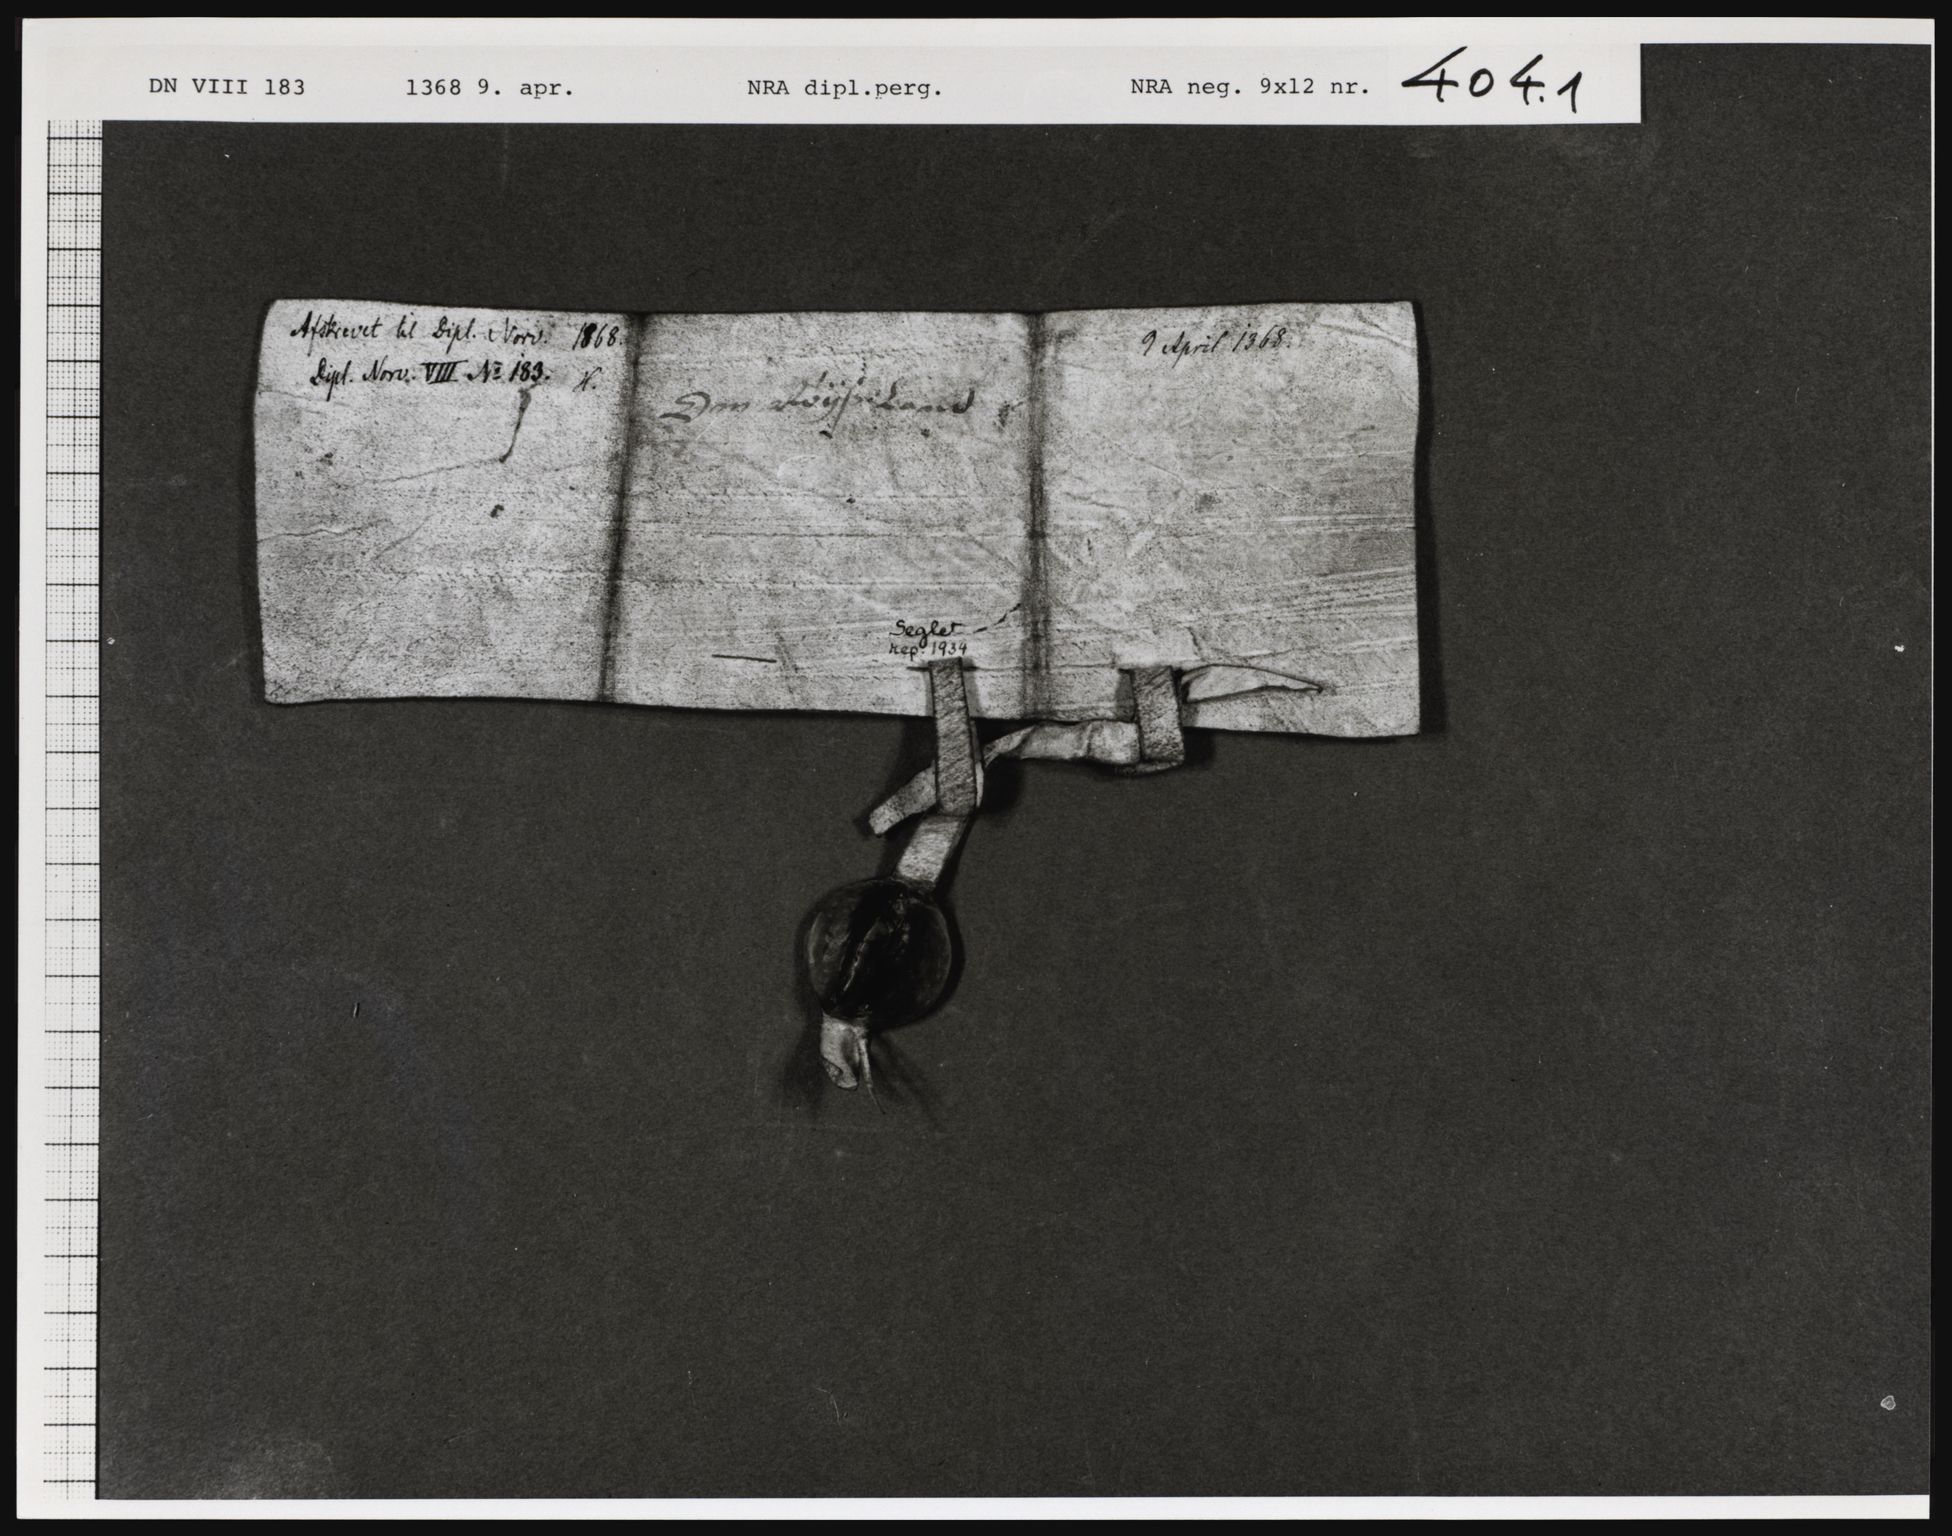 DN VIII 183 1368 9. apr. NRA dipl.perg. NRA neg. 9x12 nr. 404.1
Afskrevet til Dipl. Norv. 1868.
Dipl. Norv. VIII No 183. H.
9 April 1368.
Om Röÿseland
Seglet
rep. 1934